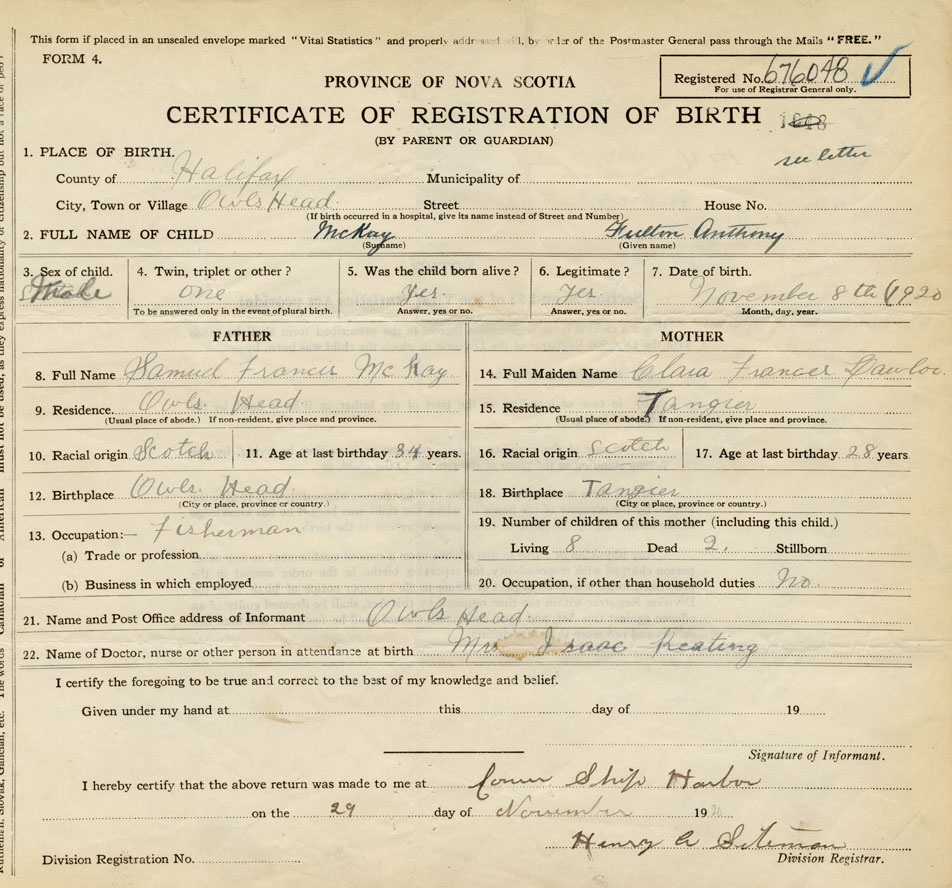 This form if placed in an unsealed envelope marked "Vital Statistics" and properly addressed will, by order of the Postmaster General pass through the Mails "FREE."
FORM 4.
Registered No. 676048
For use of Registrar General only.
PROVINCE OF NOVA SCOTIA
CERTIFICATE OF REGISTRATION OF BIRTH
(BY PARENT OR GUARDIAN)
see letter
1. PLACE OF BIRTH.
County of Halifax Municipality of
City, Town or Village Owls Head Street House No.
(If birth occurred in a hospital, give its name instead of Street and Number)
2. FULL NAME OF CHILD McKay Fulton Anthony
(Surname) (Given name)
3. Sex of child. 4. Twin, triplet or other? 5. Was the child born alive? 6. Legitimate? 7. Date of birth.
Male one yes yes November 8th 1920
To be answered only in the event of plural birth. Answer, yes or no. Answer, yes or no. Month, day, year.
FATHER MOTHER
8. Full Name Samuel Francis McKay 14. Full Maiden Name Clara Frances
9. Residence. Owls Head 15. Residence Tangier
(Usual place of abode.) If non-resident, give place and province. (Usual place of abode.) If non-resident, give place and province.
10. Racial origin Scotch 11. Age at last birthday 34 years. 16. Racial origin Scotch 17. Age at last birthday 28 years
12. Birthplace Owls Head 18. Birthplace Tangier
(City or place, province or country.) (City or place, province or country.)
13. Occupation:— Fisherman 19. Number of children of this mother (including this child.)
(a) Trade or profession Living 8 Dead 2. Stillborn
(b) Business in which employed 20. Occupation, if other than household duties No
21. Name and Post Office address of Informant Owls Head
22. Name of Doctor, nurse or other person in attendance at birth Mrs Isaac Keating
I certify the foregoing to be true and correct to the best of my knowledge and belief.
Given under my hand at this day of 19
Signature of Informant.
I hereby certify that the above return was made to me at Ship Harbor
on the 29 day of November 19
Henry A Siteman
Division Registration No. Division Registrar.